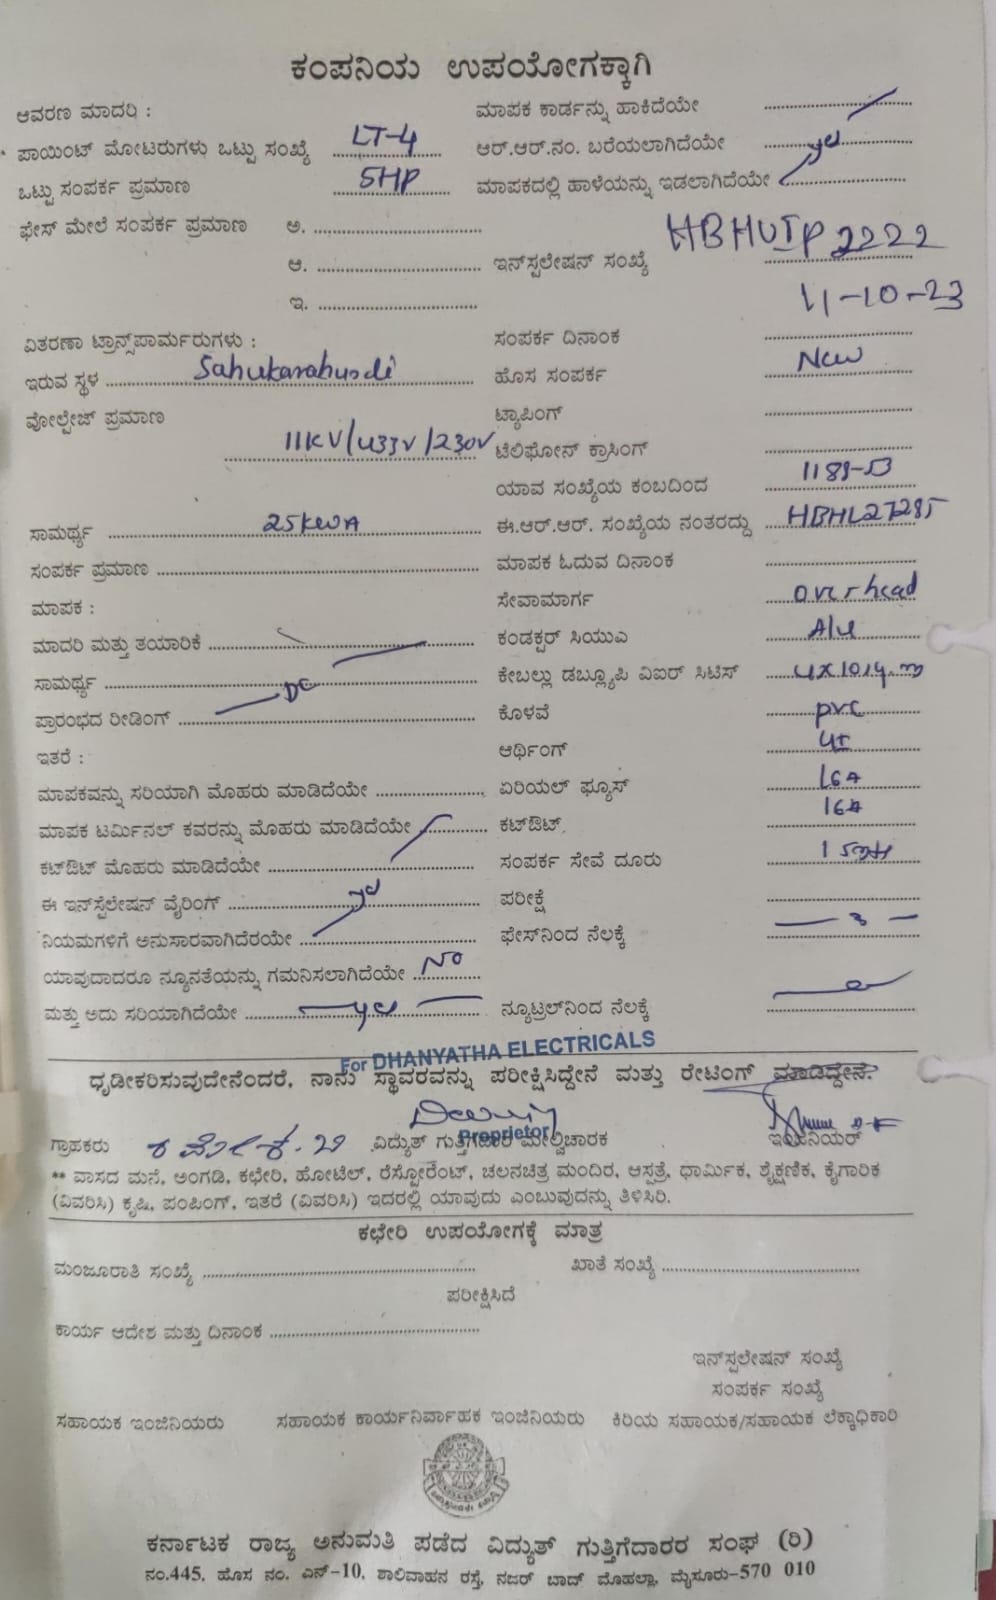 ಕಂಪನಿಯ ಉಪಯೋಗಕ್ಕಾಗಿ
ಆವರಣ ಮಾದರಿ : ಮಾಪಕ ಕಾರ್ಡನ್ನು ಹಾಕಿದೆಯೇ
ಪಾಯಿಂಟ್ ಮೋಟರುಗಳು ಒಟ್ಟು ಸಂಖ್ಯೆ LT-4 ಆರ್.ಆರ್.ನಂ. ಬರೆಯಲಾಗಿದೆಯೇ
ಒಟ್ಟು ಸಂಪರ್ಕ ಪ್ರಮಾಣ 5HP ಮಾಪಕದಲ್ಲಿ ಹಾಳೆಯನ್ನು ಇಡಲಾಗಿದೆಯೇ
ಫೇಸ್ ಮೇಲೆ ಸಂಪರ್ಕ ಪ್ರಮಾಣ ಅ.
ಆ. ಇನ್‌ಸ್ಟಲೇಷನ್ ಸಂಖ್ಯೆ HBHUIP2222
ಇ. 11-10-23
ವಿತರಣಾ ಟ್ರಾನ್ಸ್‌ಪಾರ್ಮರುಗಳು : ಸಂಪರ್ಕ ದಿನಾಂಕ
ಇರುವ ಸ್ಥಳ Sahukarahundi ಹೊಸ ಸಂಪರ್ಕ New
ವೋಲ್ಟೇಜ್ ಪ್ರಮಾಣ ಟ್ಯಾಪಿಂಗ್
11KV/433V/230V ಟೆಲಿಫೋನ್ ಕ್ರಾಸಿಂಗ್
ಯಾವ ಸಂಖ್ಯೆಯ ಕಂಬದಿಂದ
ಸಾಮರ್ಥ್ಯ 25KVA ಈ.ಆರ್.ಆರ್. ಸಂಖ್ಯೆಯ ನಂತರದ್ದು HBHL27285
ಸಂಪರ್ಕ ಪ್ರಮಾಣ ಮಾಪಕ ಓದುವ ದಿನಾಂಕ
ಮಾಪಕ : ಸೇವಾಮಾರ್ಗ overhead
ಮಾದರಿ ಮತ್ತು ತಯಾರಿಕೆ ಕಂಡಕ್ಟರ್ ಸಿಯುಎ Alu
ಸಾಮರ್ಥ್ಯ ಕೇಬಲ್ಲು ಡಬ್ಲ್ಯೂಪಿ ವಿಐಆರ್ ಸಿಟಿಸ್
ಪ್ರಾರಂಭದ ರೀಡಿಂಗ್ DC ಕೊಳವೆ pvc
ಇತರೆ : ಆರ್ಥಿಂಗ್
ಮಾಪಕವನ್ನು ಸರಿಯಾಗಿ ಮೊಹರು ಮಾಡಿದೆಯೇ ಏರಿಯಲ್ ಫ್ಯೂಸ್ 16A
ಮಾಪಕ ಟರ್ಮಿನಲ್ ಕವರನ್ನು ಮೊಹರು ಮಾಡಿದೆಯೇ ಕಟ್‌ಔಟ್ 16A
ಕಟ್‌ಔಟ್ ಮೊಹರು ಮಾಡಿದೆಯೇ ಸಂಪರ್ಕ ಸೇವೆ ದೂರು
ಈ ಇನ್‌ಸ್ಟೆಲೇಷನ್ ವೈರಿಂಗ್ ಪರೀಕ್ಷೆ
ನಿಯಮಗಳಿಗೆ ಅನುಸಾರವಾಗಿದೆರಯೇ ಫೇಸ್‌ನಿಂದ ನೆಲಕ್ಕೆ
ಯಾವುದಾದರೂ ನ್ಯೂನತೆಯನ್ನು ಗಮನಿಸಲಾಗಿದೆಯೇ No
ಮತ್ತು ಅದು ಸರಿಯಾಗಿದೆಯೇ ನ್ಯೂಟ್ರಲ್‌ನಿಂದ ನೆಲಕ್ಕೆ
For DHANYATHA ELECTRICALS
ಧೃಡೀಕರಿಸುವುದೇನೆಂದರೆ, ನಾನು ಸ್ಥಾವರವನ್ನು ಪರೀಕ್ಷಿಸಿದ್ದೇನೆ ಮತ್ತು ರೇಟಿಂಗ್ ಮಾಡಿದ್ದೇನೆ.
ಗ್ರಾಹಕರು ವಿದ್ಯುತ್ ಗುತ್ತಿಗೆದಾರ ಮೇಲ್ವಿಚಾರಕ ಇಂಜಿನಿಯರ್
Proprietor
** ವಾಸದ ಮನೆ, ಅಂಗಡಿ, ಕಛೇರಿ, ಹೋಟೆಲ್, ರೆಸ್ಟೋರೆಂಟ್, ಚಲನಚಿತ್ರ ಮಂದಿರ, ಆಸ್ಪತ್ರೆ, ಧಾರ್ಮಿಕ, ಶೈಕ್ಷಣಿಕ, ಕೈಗಾರಿಕ
(ವಿವರಿಸಿ) ಕೃಷಿ, ಪಂಪಿಂಗ್, ಇತರೆ (ವಿವರಿಸಿ) ಇದರಲ್ಲಿ ಯಾವುದು ಎಂಬುವುದನ್ನು ತಿಳಿಸಿರಿ.
ಕಛೇರಿ ಉಪಯೋಗಕ್ಕೆ ಮಾತ್ರ
ಮಂಜೂರಾತಿ ಸಂಖ್ಯೆ ಖಾತೆ ಸಂಖ್ಯೆ
ಪರೀಕ್ಷಿಸಿದೆ
ಕಾರ್ಯ ಆದೇಶ ಮತ್ತು ದಿನಾಂಕ
ಇನ್‌ಸ್ಟಲೇಷನ್ ಸಂಖ್ಯೆ
ಸಂಪರ್ಕ ಸಂಖ್ಯೆ
ಸಹಾಯಕ ಇಂಜಿನಿಯರು ಸಹಾಯಕ ಕಾರ್ಯನಿರ್ವಾಹಕ ಇಂಜಿನಿಯರು ಕಿರಿಯ ಸಹಾಯಕ/ಸಹಾಯಕ ಲೆಕ್ಕಾಧಿಕಾರಿ
ಕರ್ನಾಟಕ ರಾಜ್ಯ ಅನುಮತಿ ಪಡೆದ ವಿದ್ಯುತ್ ಗುತ್ತಿಗೆದಾರರ ಸಂಘ (ರಿ)
ನಂ.445, ಹೊಸ ನಂ. ಎನ್-10, ಶಾಲಿವಾಹನ ರಸ್ತೆ, ನಜರ್ ಬಾದ್ ಮೊಹಲ್ಲಾ, ಮೈಸೂರು-570 010